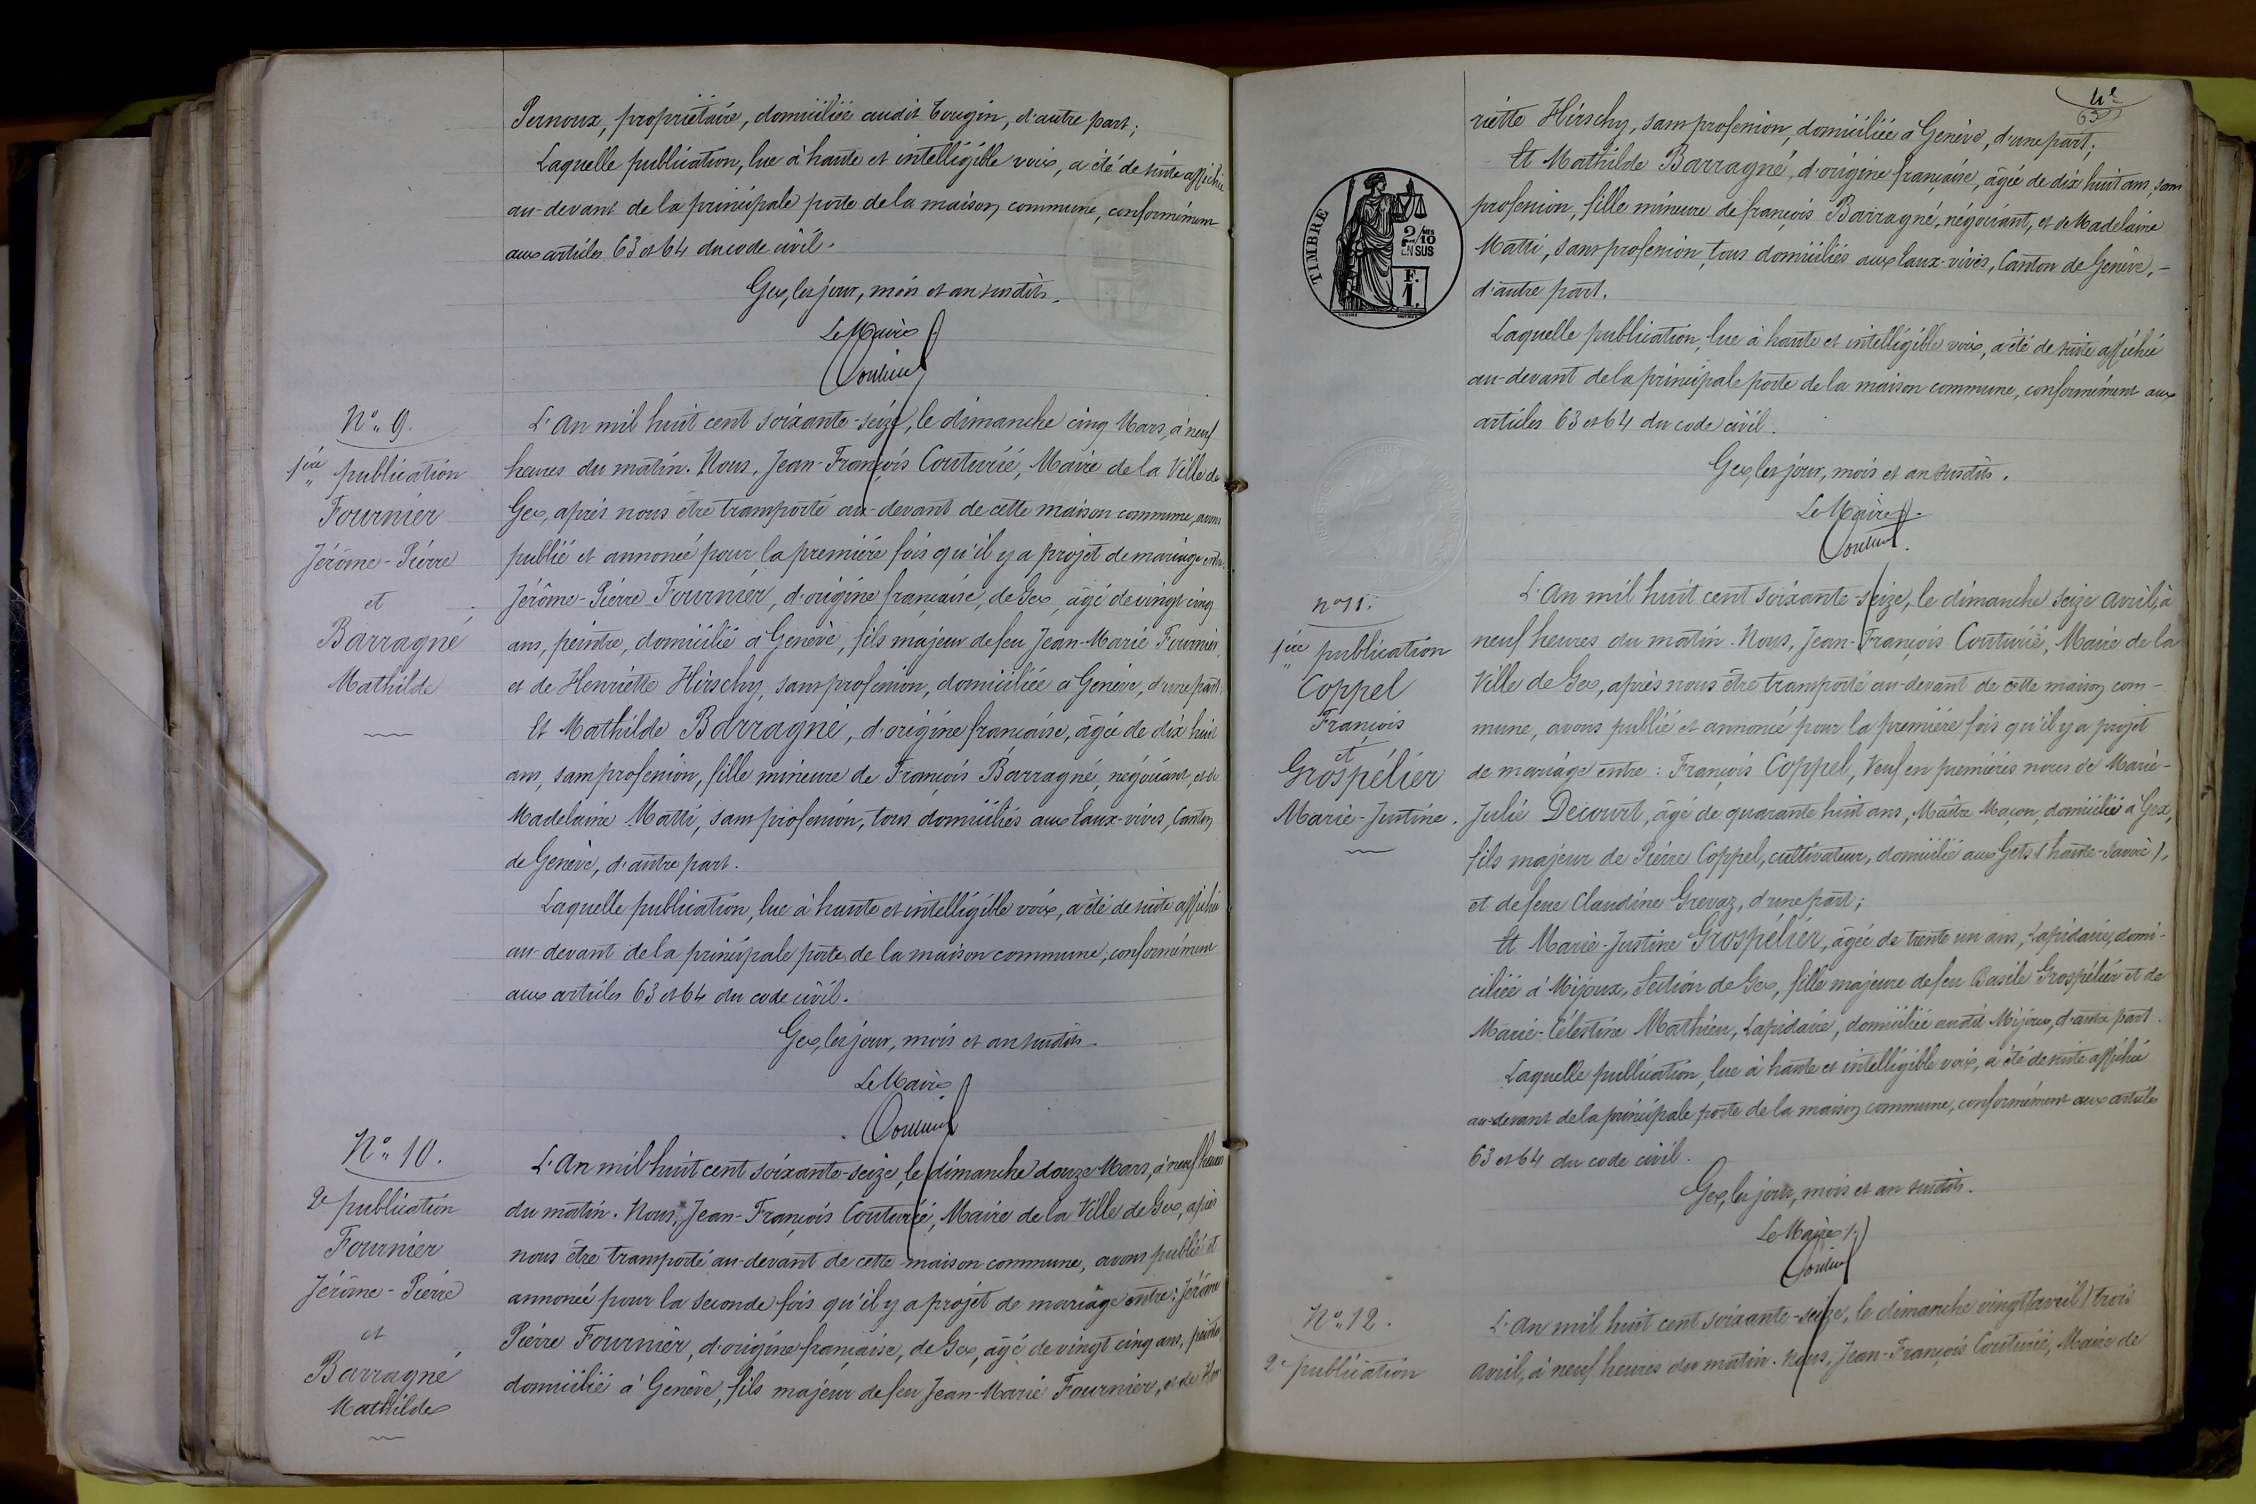 Pernoux, propriétaire, domiciliée audit Tougin, d'autre part;
Laquelle publication, lue à haute et intelligible voix, a été de suite affichée
au-devant de la principale porte de la maison commune, conformément
aux articles 63 et 64 du code civil.
Gex, les jour, mois et an susdits.
Le Maire
Couturié
N° 9.
1ère publication
Fournier
Jérôme-Pierre
et
Barragné
Mathilde
L'An mil huit cent soixante-seize, le dimanche cinq Mars, à neuf
heures du matin. Nous, Jean-François Couturié, Maire de la Ville de
Gex, après nous être transporté au-devant de cette maison commune, avons
publié et annoncé pour la première fois qu'il y a projet de mariage entre:
Jérôme-Pierre Fournier, d'origine française, de Gex, âgé de vingt cinq
ans, peintre, domicilié à Genève, fils majeur de feu Jean-Marie Fournier,
et de Henriette Hirschy, sans profession, domiciliée à Genève, d'une part;
Et Mathilde Barragné, d'origine française, âgée de dix huit
ans, sans profession, fille mineure de François Barragné, négociant, et de
Madelaine Matti, sans profession, tous domiciliés aux Eaux-vives, Canton
de Genève, d'autre part.
Laquelle publication, lue à haute et intelligible voix, a été de suite affichée
au-devant de la principale porte de la maison commune, conformément
aux articles 63 et 64 du code civil.
Gex, les jour, mois et an susdits.
Le Maire
Couturié
N° 10.
2e publication
Fournier
Jérôme-Pierre
et
Barragné
Mathilde
L'An mil huit cent soixante-seize, le dimanche douze Mars, à neuf heures
du matin. Nous, Jean-François Couturié, Maire de la Ville de Gex, après
nous être transporté au-devant de cette maison commune, avons publié et
annoncé pour la seconde fois qu'il y a projet de mariage entre: Jérôme
Pierre Fournier, d'origine française, de Gex, âgé de vingt cinq ans, peintre
domicilié à Genève, fils majeur de feu Jean-Marie Fournier, et de Hen
4e
63
riette Hirschy, sans profession, domiciliée à Genève, d'une part;
Et Mathilde Barragné, d'origine française, âgée de dix huit ans, sans
profession, fille mineure de françois Barragné, négociant, et de Madelaine
Matti, sans profession, tous domiciliés aux Eaux-vives, Canton de Genève,-
d'autre part.
TIMBRE
2/10
EN SUS
F.
1.
Laquelle publication, lue à haute et intelligible voix, a été de suite affichée
au-devant de la principale porte de la maison commune, conformément aux
articles 63 et 64 du code civil.
Gex, les jour, mois et an susdits.
Le Maire
Couturié
n° 11.
1ère publication
Coppel
François
et
Grospélier
Marie-Justine.
L'An mil huit cent soixante-seize, le dimanche seize avril, à
neuf heures du matin. Nous, Jean-François Couturié, Maire de la
Ville de Gex, après nous être transporté au-devant de cette maison com-
mune, avons publié et annoncé pour la première fois qu'il y a projet
de mariage entre: François Coppel, Veuf en premières noces de Marie-
Julie Decourt, âgé de quarante huit ans, Maître Maçon, domicilié à Gex,
fils majeur de Pierre Coppel, cultivateur, domicilié aux Gets (haute-Savoie),
et de feue Claudine Grevaz, d'une part;
Et Marie-Justine Grospélier, âgée de trente un ans, Lapidaire, domi-
ciliée à Mijoux, Section de Gex, fille majeure de feu Basile Grospélier et de
Marie-Célestine Mathieu, Lapidaire, domiciliée audit Mijoux, d'autre part.
Laquelle publication, lue à haute et intelligible voix, a été de suite affichée
au-devant de la principale porte de la maison commune, conformément aux articles
63 et 64 du code civil.
Gex, les jour, mois et an susdits.
Le Maire
Couturié
N° 12.
2e publication
L'An mil huit cent soixante-seize, le dimanche vingt (avril) trois
avril, à neuf heures du matin. Nous, Jean-François Couturié, Maire de